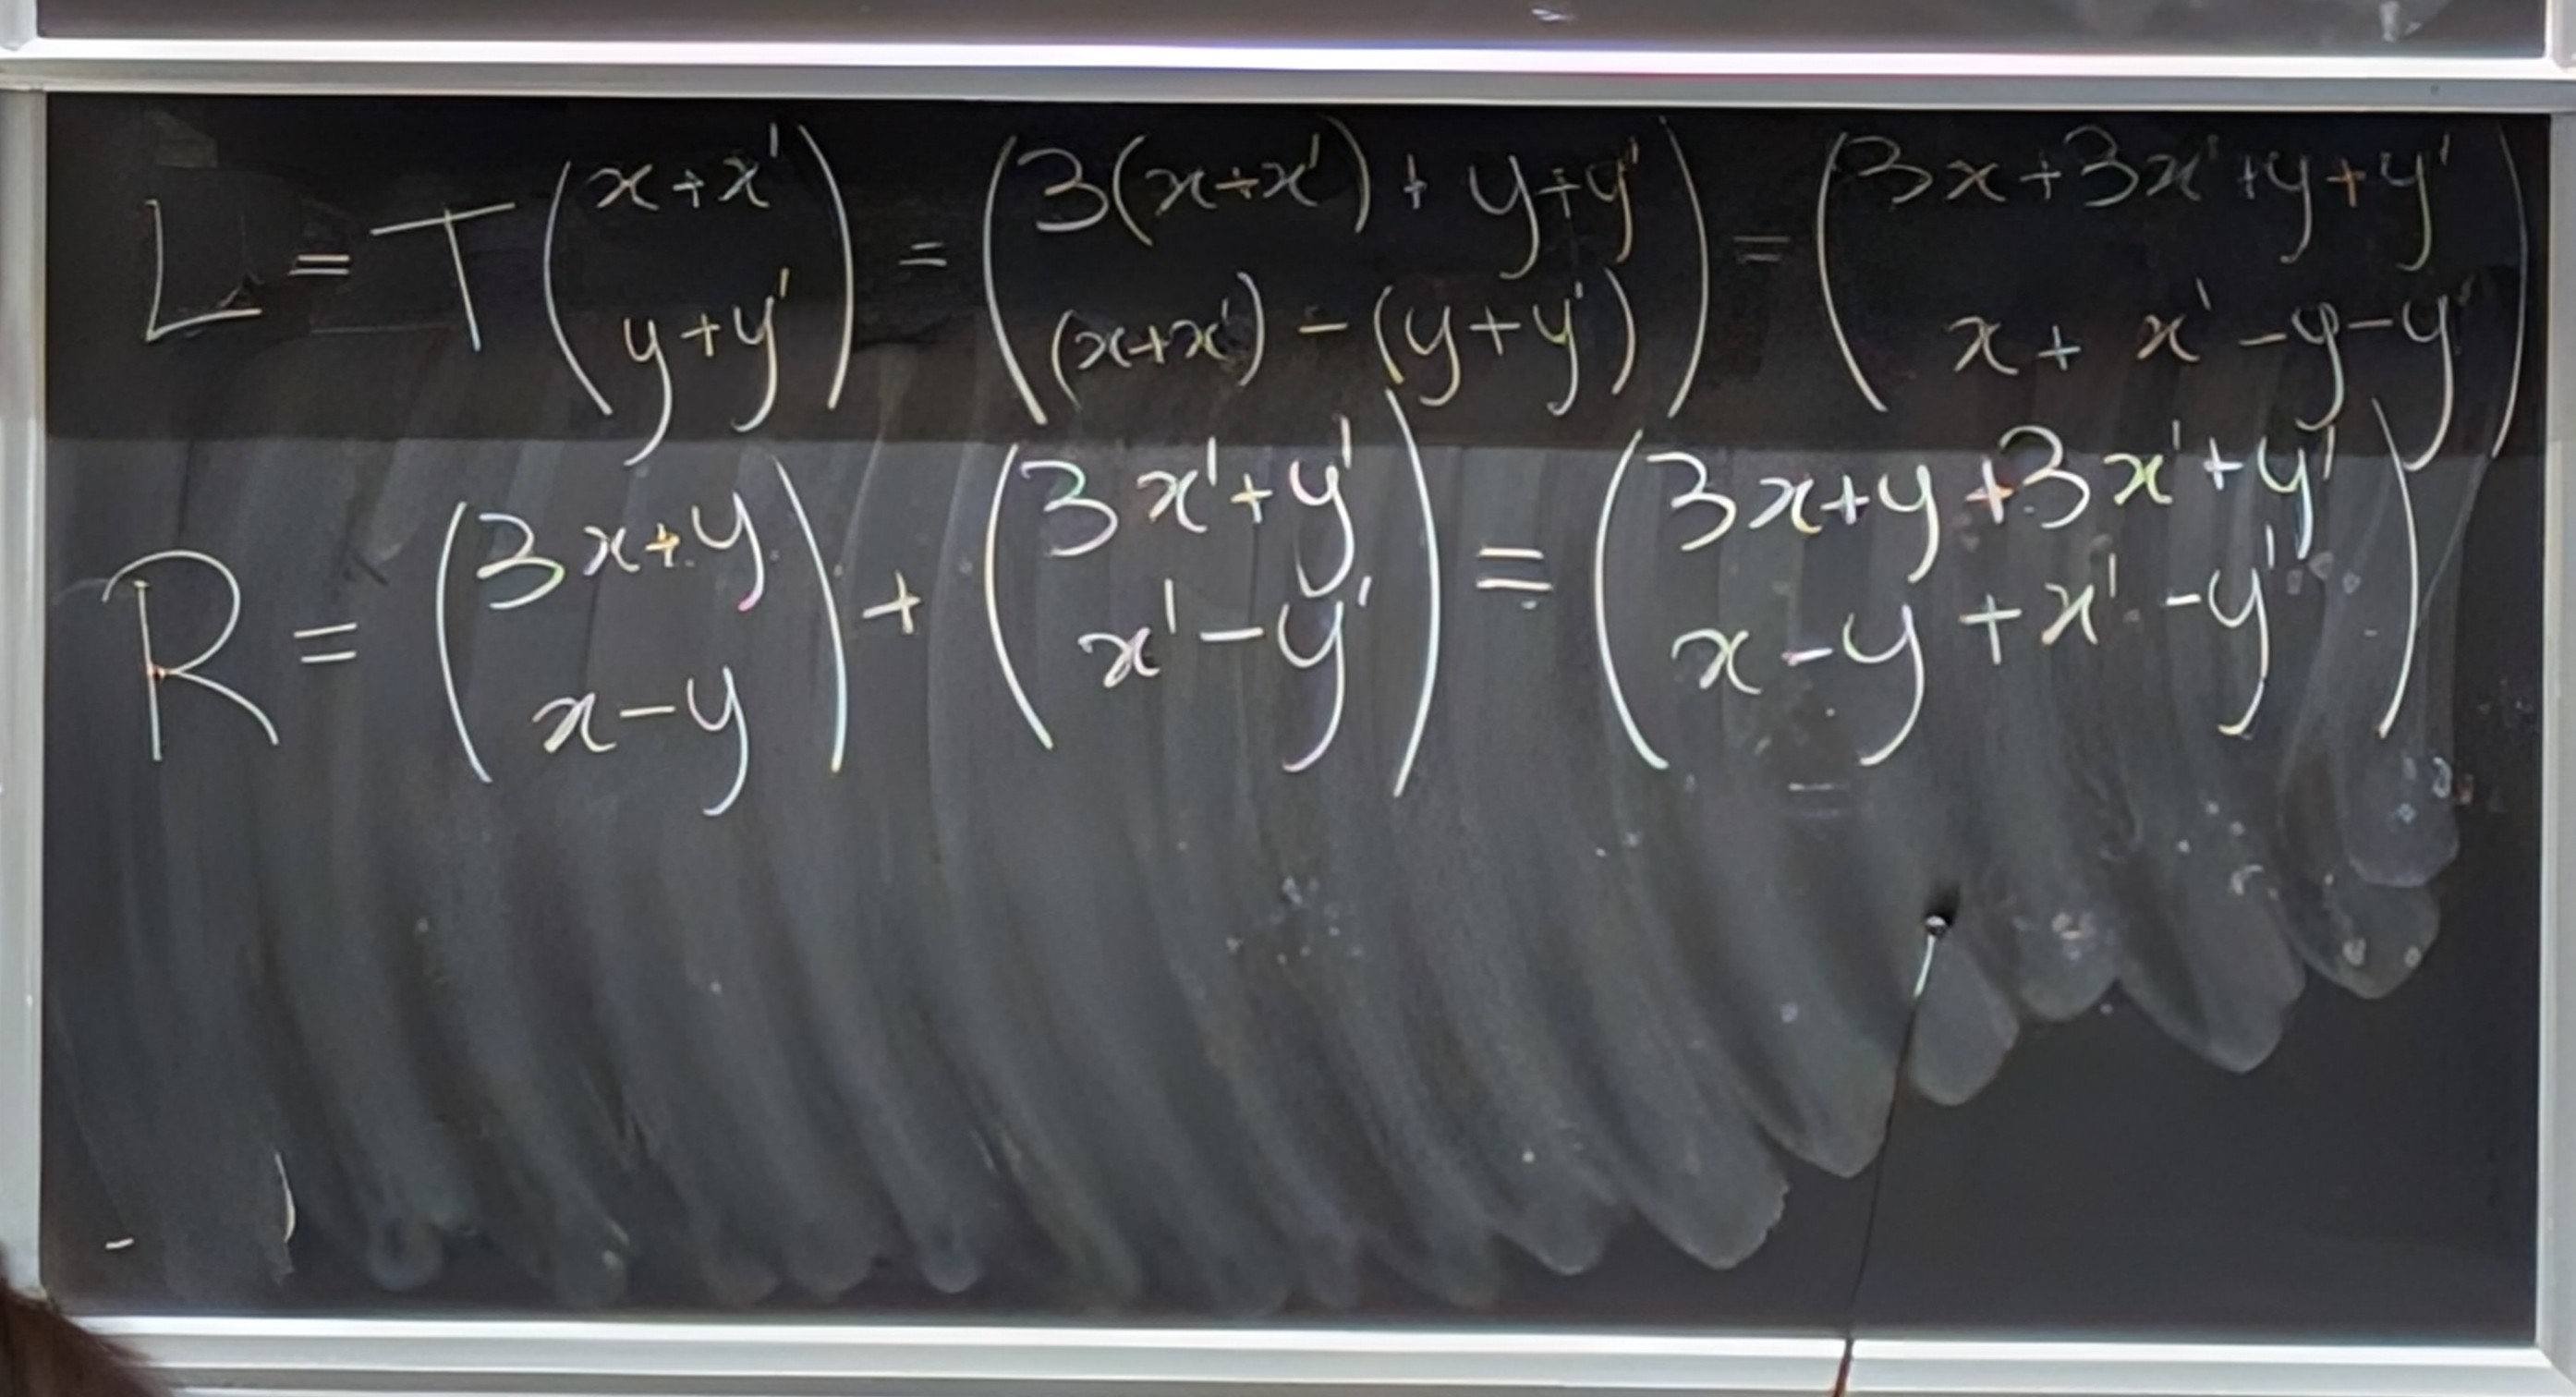 L = T (x+x' y+y') = (3(x+x') + y+y' (x+x') - (y+y')) = (3x+3x'+y+y' x+x'-y-y')
R = (3x+y x-y) + (3x'+y' x'-y') = (3x+y+3x'+y' x-y+x'-y')